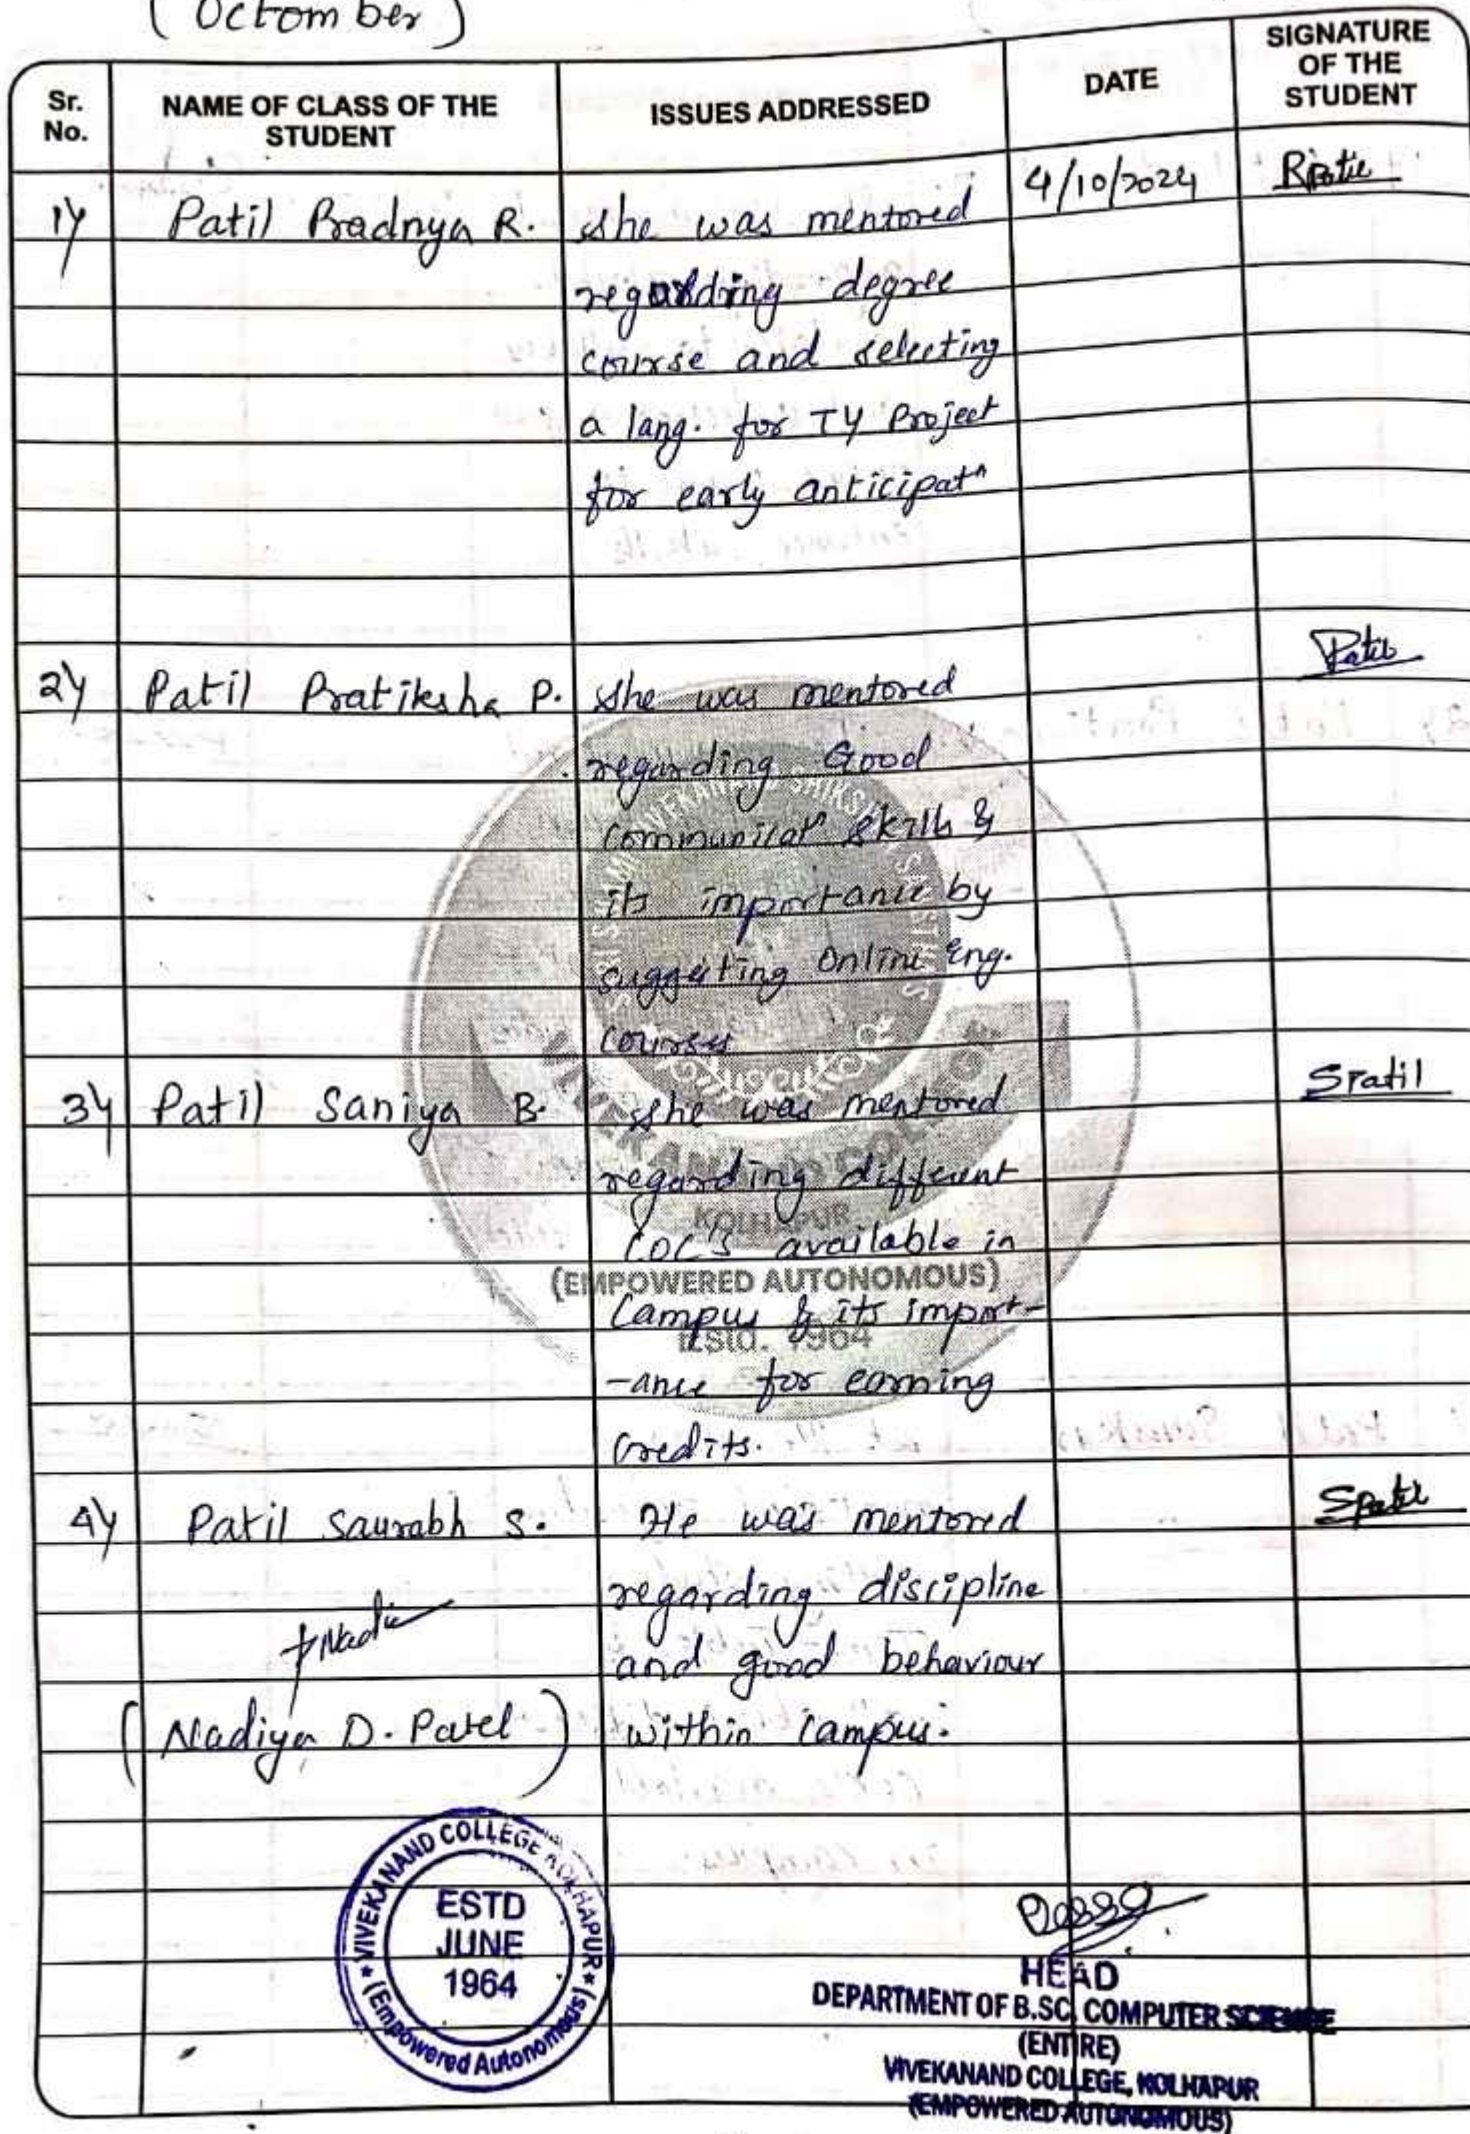 (Octomber)
Sr. No.
NAME OF CLASS OF THE STUDENT
ISSUES ADDRESSED
DATE
SIGNATURE OF THE STUDENT
1) Patil Pradnya R. She was mentored 4/10/2024 RPatil
regarding degree
course and selecting
a lang. for TY Project
for early anticipatⁿ
2) Patil Pratiksha P. She was mentored Patil
regarding Good
Communicatⁿ skills &
its importance by
suggesting Online Eng.
Courses
3) Patil Saniya B. She was mentored SPatil
regarding different
COC's available in
Campus & its import-
-ance for earning
Credits.
4) Patil Saurabh S. He was mentored SPatil
regarding discipline
and good behaviour
(Nadiya D. Patel) within campus.
SHRI SWAMI VIVEKANAND SHIKSHAN SANSTHA'S
VIVEKANAND COLLEGE
KOLHAPUR
(EMPOWERED AUTONOMOUS)
Estd. 1964
VIVEKANAND COLLEGE KOLHAPUR
(Empowered Autonomous)
ESTD
JUNE
1964
HEAD
DEPARTMENT OF B.SC. COMPUTER SCIENCE
(ENTIRE)
VIVEKANAND COLLEGE, KOLHAPUR
(EMPOWERED AUTONOMOUS)